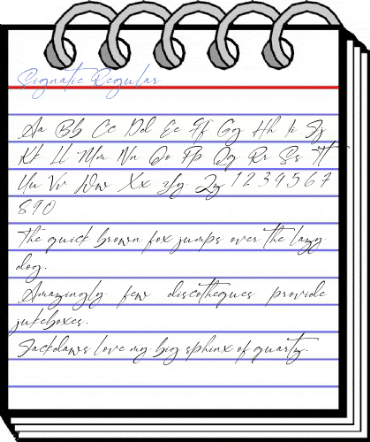 Signatie Regular
Aa Bb Cc Dd Ee Ff Gg Hh Ii Jj
Kk Ll Mm Nn Oo Pp Qq Rr Ss Tt
Uu Vv Ww Xx Yy Zz 1 2 3 4 5 6 7
8 9 0
The quick brown fox jumps over the lazy
dog.
Amazingly few discotheques provide
jukeboxes.
Jackdaws love my big sphinx of quartz.